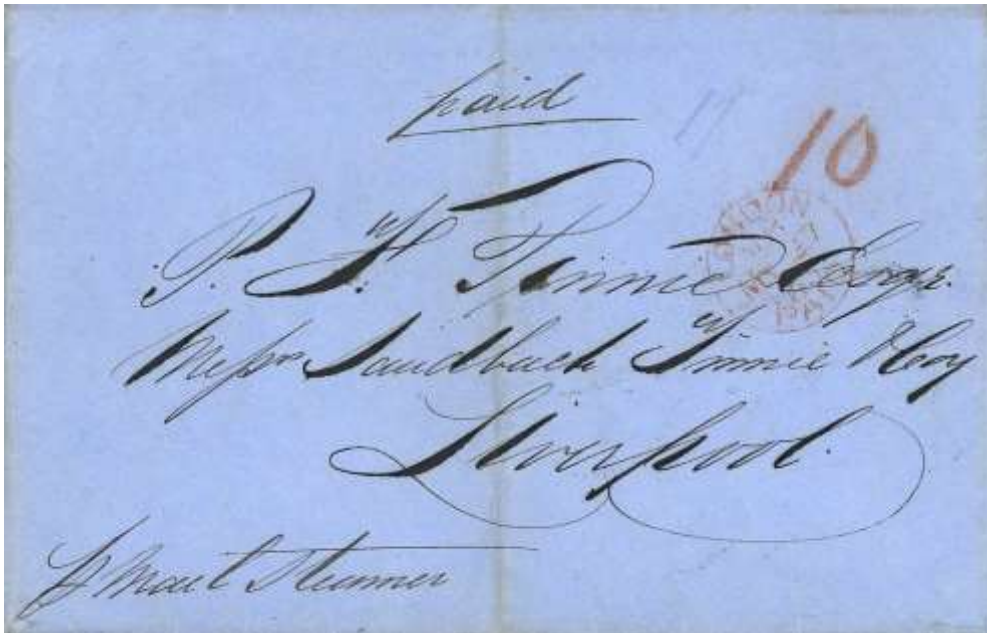 paid
10
P. F. Tinnie Esqr.
Messrs Sandbach Tinnie & Coy
Liverpool.
p Mail Steamer